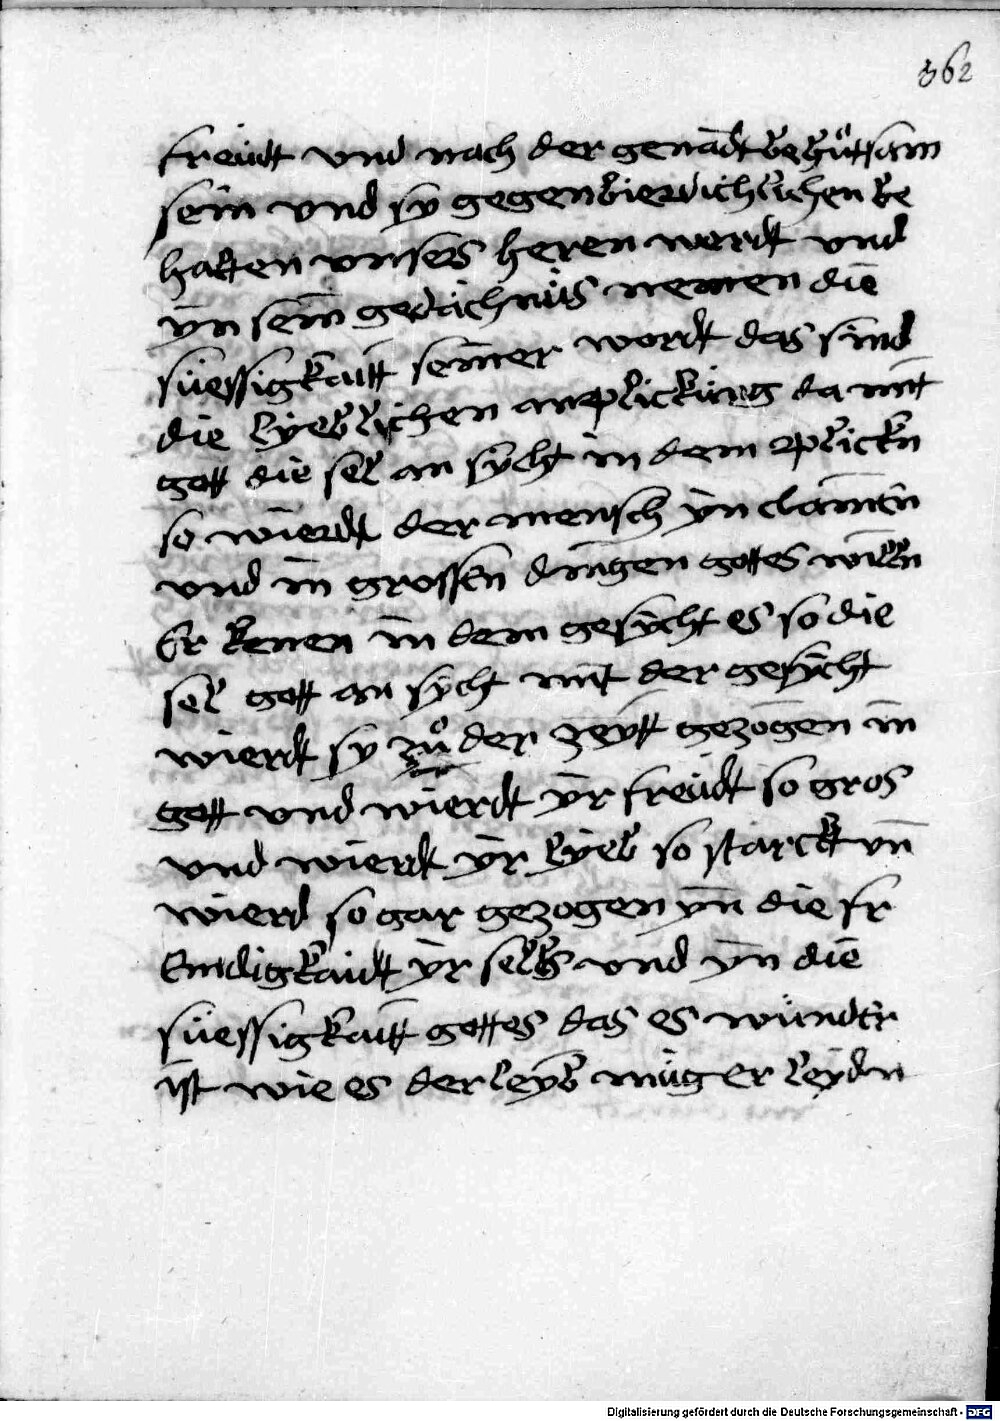 362
freüdt vnd nach der genadt behüttsam
sein vnd sy gegenbierdichlichen be
halten vnsers heren werdt vnd
yn seim gedächnüs nemen die
süessigkaitt seiner wordt das sind
die lyeblichen anplicküng da mit
gott die sel an sycht in dem plickn
so wierdt der mensch yn clainen
vnd in grossen dingen gottes willn
Er kenen in dem gesycht es so die
sel gott an sycht mit der gesycht
wierdt sy zů der zeytt gezogen in
gott vnd wierdt yr freüdt so gros
vnd wierdt yr lyeb so starck vn̄
wierd so gar gezogen yn die fr
Emdigkaidt yr selbs vnd yn die
süessigkaitt gottes das es wunder
ist wie es der leyb müg er leydn
Digitalisierung gefördert durch die Deutsche Forschungsgemeinschaft - DFG